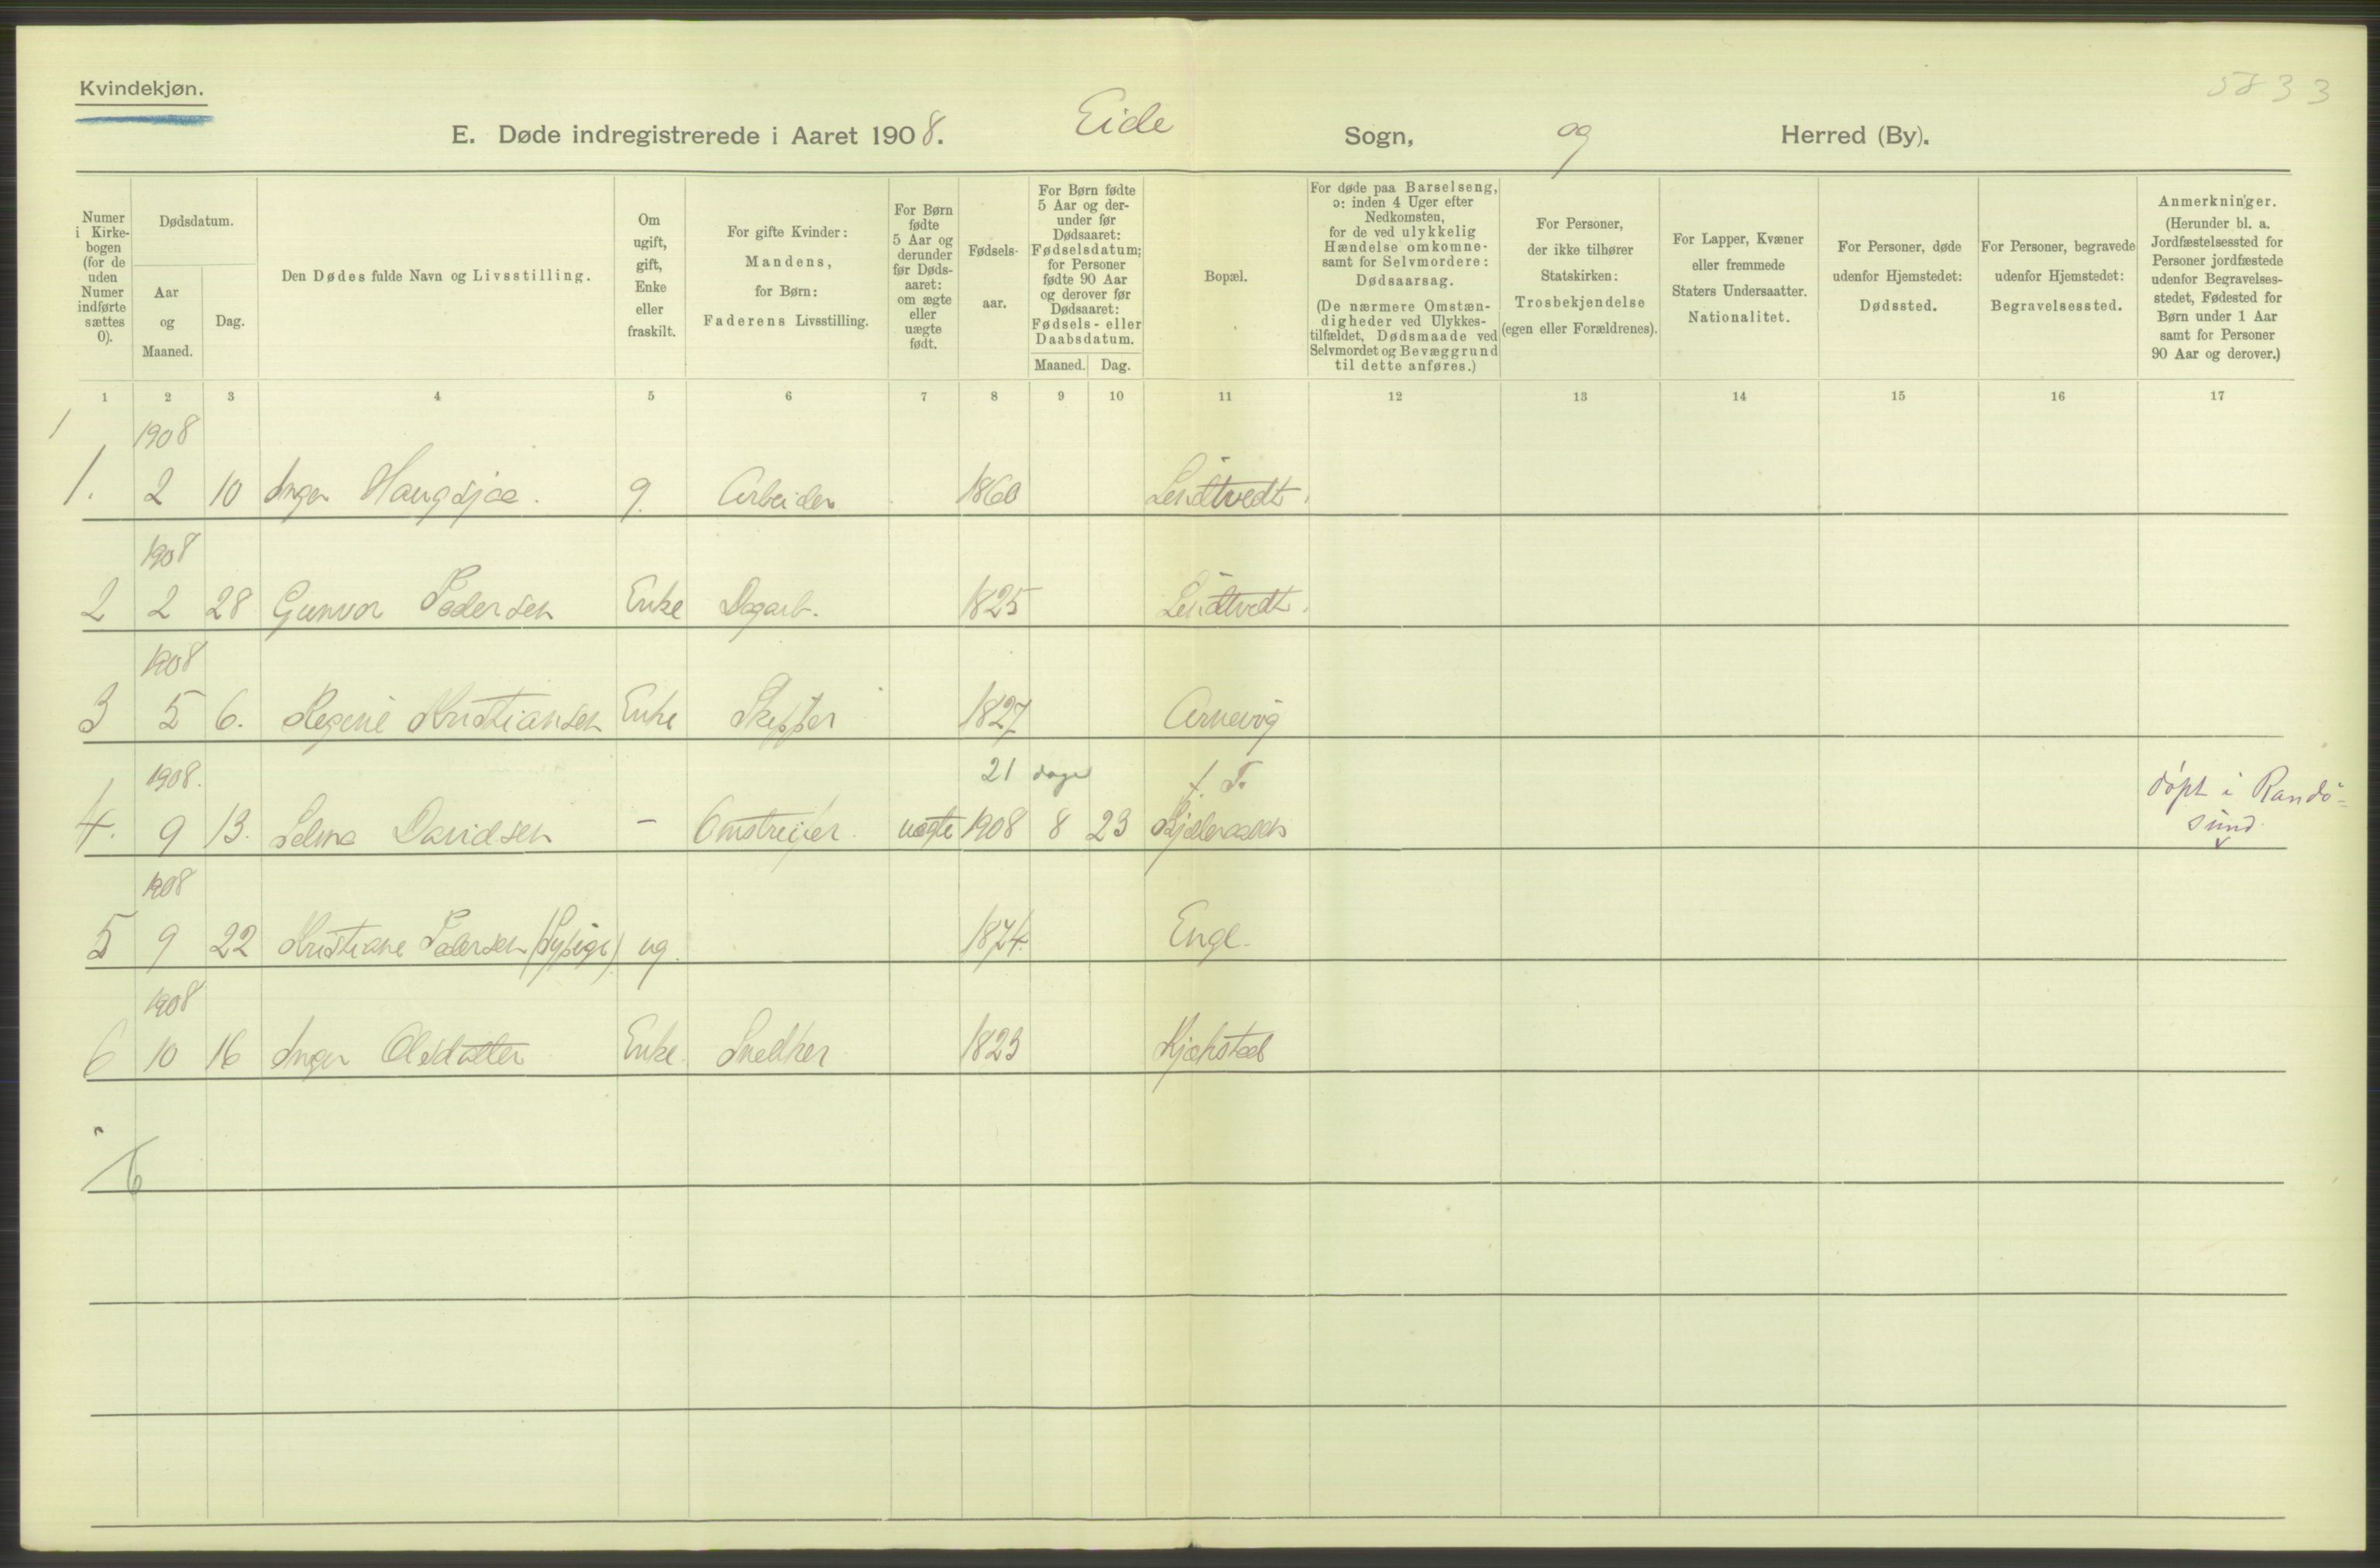 Kvindekjøn.
5833
E. Døde indregistrerede i Aaret 1908. Eide Sogn, og Herred (By).
Numer i Kirkebogen (for de uden Numer indførte sættes 0).
Dødsdatum.
Aar og Maaned.
Dag.
Den Dødes fulde Navn og Livsstilling.
Om ugift, gift, Enke eller fraskilt.
For gifte Kvinder: Mandens, for Børn: Faderens Livsstilling.
For Børn fødte 5 Aar og derunder før Dødsaaret: om ægte eller uægte født.
Fødselsaar.
For Børn fødte 5 Aar og derunder før Dødsaaret: Fødselsdatum; for Personer fødte 90 Aar og derover før Dødsaaret: Fødsels- eller Daabsdatum.
Maaned. Dag.
Bopæl.
For døde paa Barselseng, ɔ: inden 4 Uger efter Nedkomsten, for de ved ulykkelig Hændelse omkomne samt for Selvmordere: Dødsaarsag. (De nærmere Omstændigheder ved Ulykkestilfældet, Dødsmaade ved Selvmordet og Bevæggrund til dette anføres.)
For Personer, der ikke tilhører Statskirken: Trosbekjendelse (egen eller Forældrenes).
For Lapper, Kvæner eller fremmede Staters Undersaatter. Nationalitet.
For Personer, døde udenfor Hjemstedet: Dødssted.
For Personer, begravede udenfor Hjemstedet: Begravelsessted.
Anmerkninger. (Herunder bl. a. Jordfæstelsessted for Personer jordfæstede udenfor Begravelsesstedet, Fødested for Børn under 1 Aar samt for Personer 90 Aar og derover.)
1 2 3 4 5 6 7 8 9 10 11 12 13 14 15 16 17
1 1908
1. 2 10 Inger Haugsjaa. g. Arbeider 1860 Lendtvedt.
1908
2 2 28 Gunvor Pedersen Enke Dagarb. 1825 Lendtvedt.
1908
3 5 6. Regine Kristiansen Enke Skipper 1827 Arnevig
1908. 21 dage f. T.
4. 9 13. Selma Davidsen - Omstreifer. uægte 1908 8 23 døpt i Randösund
1908
5 9 22 Kristiane Pedersen (Sypige) ug. 1874. Enge.
1908
6 10 16 Inger Olsdatter Enke. Snedker 1823
6